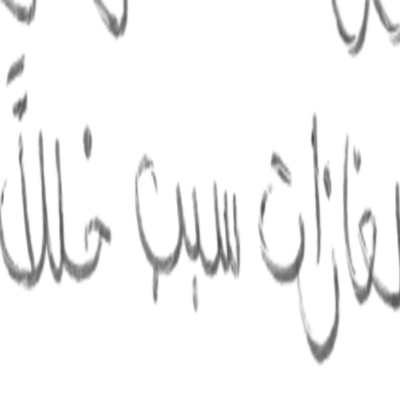 لغازات سبب خللاً